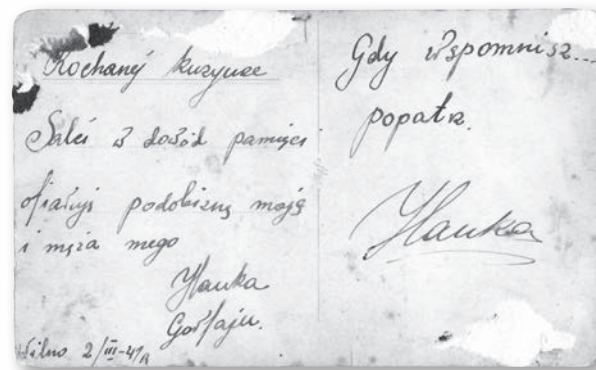 Kochanej kuzynce
Sali w dowód pamięci
ofiaruję podobiznę moją
i męża mego
Hanka
Wilno 2/III-41R
Gdy wspomnisz...
popatrz
Hanka